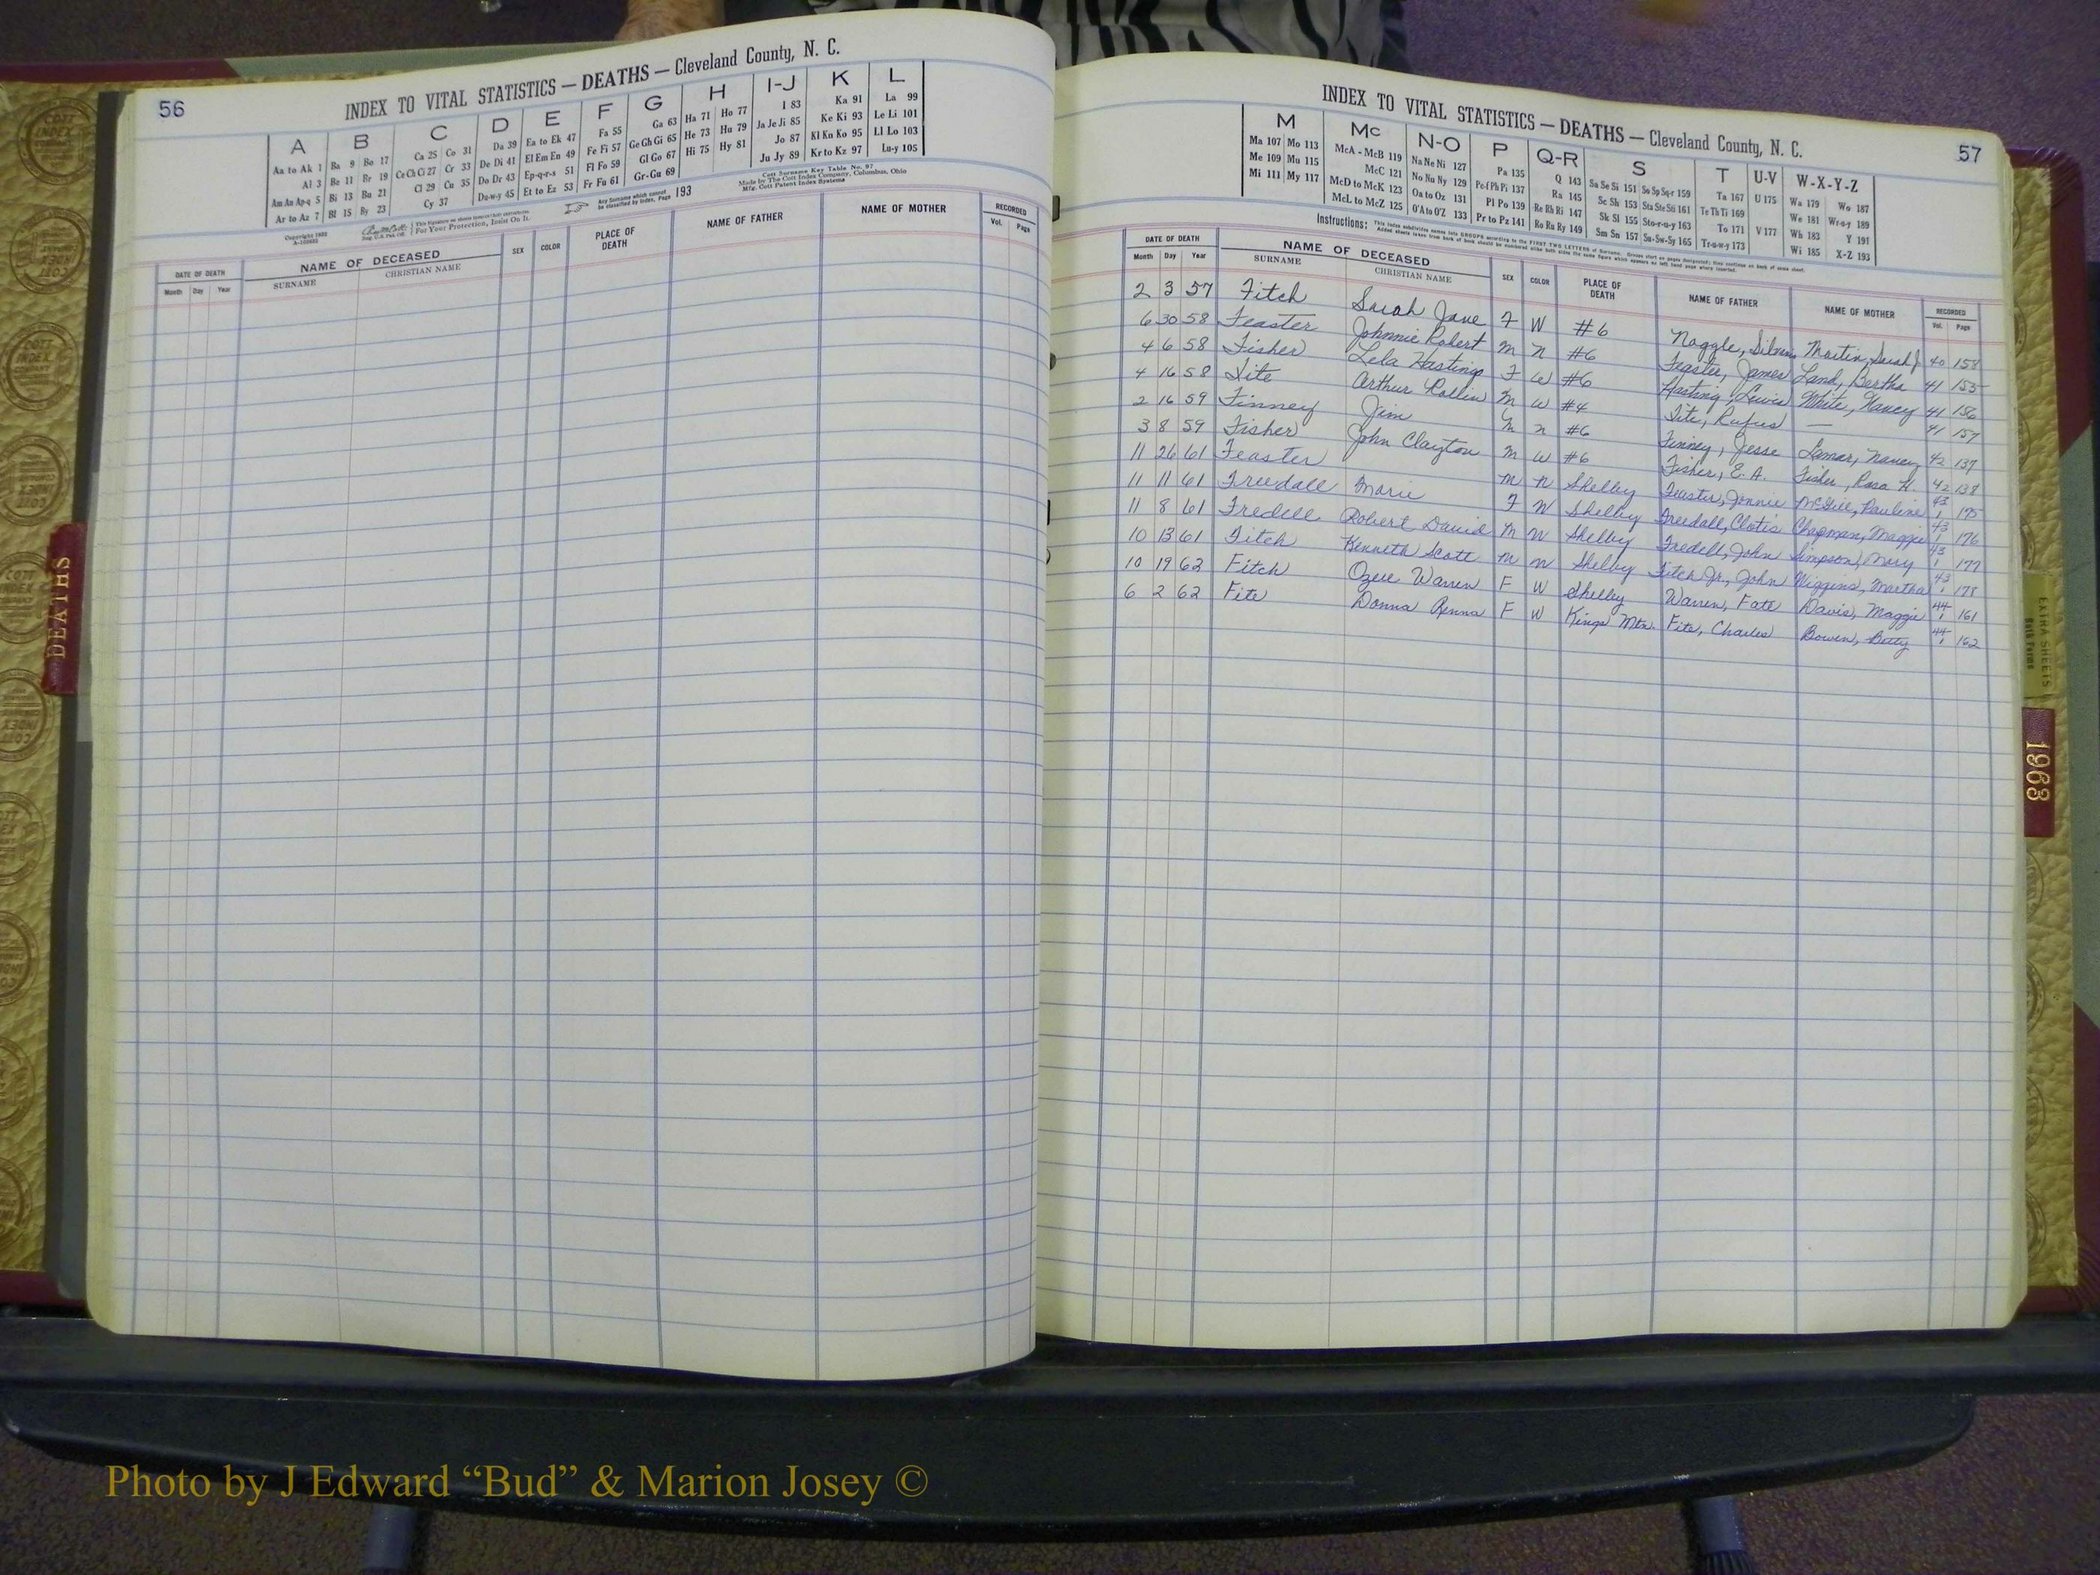 56
INDEX TO VITAL STATISTICS — DEATHS — Cleveland County, N. C.
A B C D E F G H I-J K L
Aa to Ak 1 Ba 9 Bo 17 Ca 25 Co 31 Da 39 Ea to Ek 47 Fa 55 Ga 63 Ha 71 Ho 77 I 83 Ka 91 La 99
Al 3 Be 11 Br 19 Ce Ch Ci 27 Cr 33 De Di 41 El Em En 49 Fe Fi 57 Ge Gh Gi 65 He 73 Hu 79 Ja Je Ji 85 Ke Ki 93 Le Li 101
Am An Ap-q 5 Bi 13 Bu 21 Cl 29 Cu 35 Do Dr 43 Ep-q-r-s 51 Fl Fo 59 Gl Go 67 Hi 75 Hy 81 Jo 87 Kl Kn Ko 95 Ll Lo 103
Ar to Az 7 Bl 15 By 23 Cy 37 Du-w-y 45 Et to Ez 53 Fr Fu 61 Gr-Gu 69 Ju Jy 89 Kr to Kz 97 Lu-y 105
Copyright 1932
For Your Protection, Insist On It.
Any Surname which cannot be classified by Index, Page 193
Cott Surname Key Table No. 97
Made by The Cott Index Company, Columbus, Ohio
Mfg. Cott Patent Index Systems
DATE OF DEATH NAME OF DECEASED SEX COLOR PLACE OF DEATH NAME OF FATHER NAME OF MOTHER RECORDED
Month Day Year SURNAME CHRISTIAN NAME Vol. Page
57
INDEX TO VITAL STATISTICS — DEATHS — Cleveland County, N. C.
M Mc N-O P Q-R S T U-V W-X-Y-Z
Ma 107 Mo 113 McA - McB 119 Na Ne Ni 127 Pa 135 Q 143 Sa Se Si 151 So Sp Sq-r 159 Ta 167 U 175 Wa 179 Wo 187
Me 109 Mu 115 McC 121 No Nu Ny 129 Pe-f Ph Pi 137 Ra 145 Sc Sh 153 Sta Ste Sti 161 Te Th Ti 169 We 181 Wr-u-y 189
Mi 111 My 117 McD to McK 123 Oa to Oz 131 Pl Po 139 Re Rh Ri 147 Sk Sl 155 Sto-r-u-y 163 To 171 V 177 Wh 183 Y 191
McL to McZ 125 O'A to O'Z 133 Pr to Pz 141 Ro Ru Ry 149 Sm Sn 157 Su-Sw-Sy 165 Tr-u-w-y 173 Wi 185 X-Z 193
Instructions: This index subdivides names into GROUPS according to the FIRST TWO LETTERS of Surname.
DATE OF DEATH NAME OF DECEASED SEX COLOR PLACE OF DEATH NAME OF FATHER NAME OF MOTHER RECORDED
Month Day Year SURNAME CHRISTIAN NAME Vol. Page
2 3 57 Fitch Sarah Jane F W #6 Noggle, Martin, Sarah J 40 158
6 30 58 Feaster Johnnie Robert M N #6 Feaster, James Land, Bertha 41 155
4 6 58 Fisher Lela Hastings F W #6 Hasting, Lewis White, Nancy 41 156
4 16 58 Fite Arthur Rollin M W #4 Fite, Rufus — 41 157
2 16 59 Finney Jim M N #6 Finney, Jesse Lamar, Nancy 42 137
3 8 59 Fisher John Clayton M W #6 Fisher, E. A. Fisher, Rosa H. 42 138
11 26 61 Feaster M N Shelby Feaster, Jonnie McGill, Pauline 43 175
11 11 61 Freedall Marie F W Shelby Freedall, Clotis Chapman, Maggie 43 176
11 8 61 Fredell Robert David M W Shelby Fredell, John Simpson, Mary 43 177
10 13 61 Fitch Kenneth Scott M W Shelby Fitch Jr., John Wiggins, Martha 43 178
10 19 62 Fitch Ozee Warren F W Shelby Warren, Fate Davis, Maggie 44 161
6 2 62 Fite Donna Renna F W Kings Mtn. Fite, Charles Bowen, Betty 44 162
DEATHS
1963
EXTRA SHEETS
Photo by J Edward “Bud” & Marion Josey ©